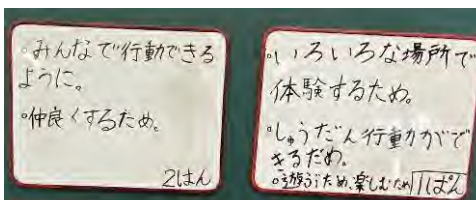 。みんなで行動できる
ように。
。仲良くするため。
2はん
。いろいろな場所で
体験するため。
。しゅうだん行動ができ
きるだめ。
。遊ぶため、楽しむため
1ぱん